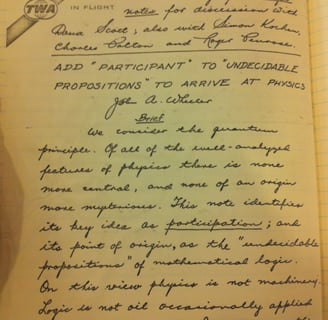 TWA
IN FLIGHT
notes for discussion with
Dana Scott; also with Simon Kochen,
Charles Patton and Roger Penrose.
ADD "PARTICIPANT" TO "UNDECIDABLE
PROPOSITIONS" TO ARRIVE AT PHYSICS
John A. Wheeler
Brief
We consider the quantum
principle. Of all of the well-analyzed
features of physics there is none
more central, and none of an origin
more mysterious. This note identifies
its key idea as participation; and
its point of origin, as the "undecidable
propositions" of mathematical logic.
On this view physics is not machinery.
Logic is not oil occasionally applied